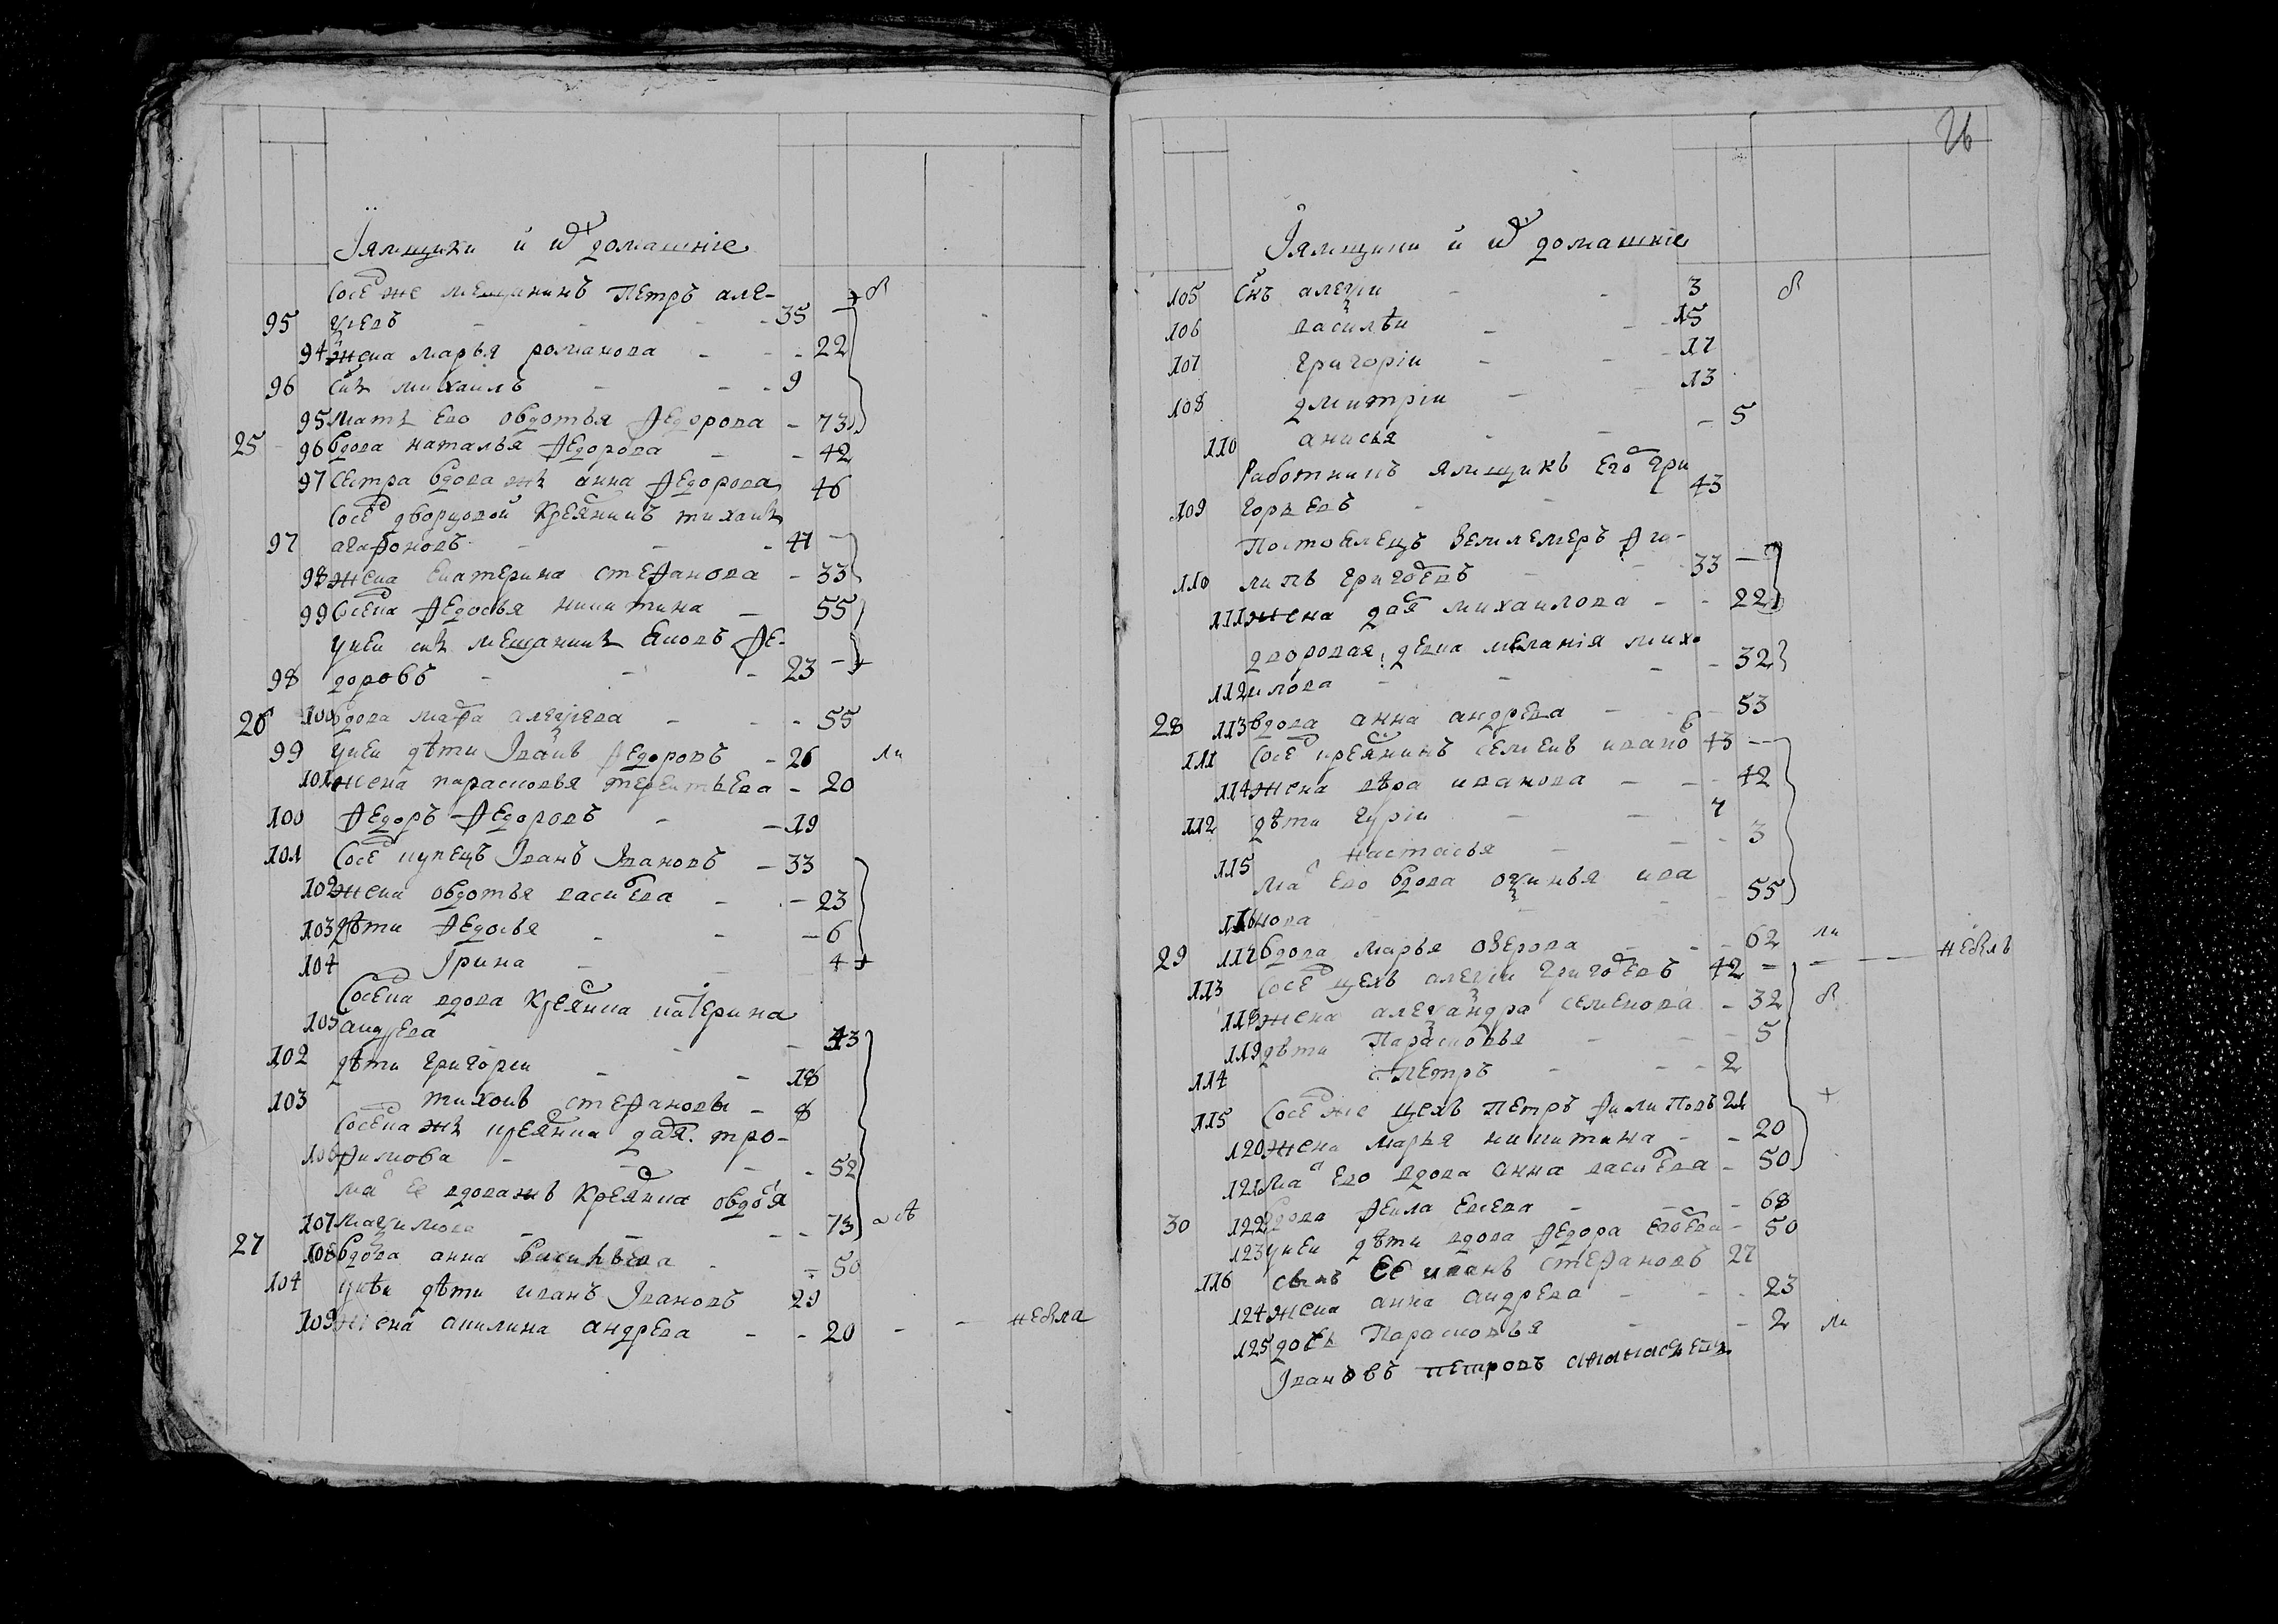 Ямщики и ихъ домашніе
Сосед же мещанинъ Петръ але-
95 ѯеевъ - - - 35
94 Жена марья романова - - - 22
96 снъ михаилъ - - - 9
95 мать ево овдотья ѳедорова - 73
25 96 вдова наталья ѳедорова - - 42
97 сестра вдова жъ анна ѳедорова 46
сосед дворцовой крестянинъ тиханъ
97 агафоновъ - - - 41
98 жена Екатерина стефанова - 33
99 соседка ѳедосья никитина - 55
у неи снъ мещанинъ ѳе-
98 доровъ - - - 23
26 100 вдова марфа алеѯеева - - - 55
99 у неи дѣти Іванъ ѳедоровъ - 26 ли
101 жена парасковья терентьева - 20
100 ѳедоръ ѳедоровъ - - 19
101 Сосед купецъ Іванъ Івановъ - 33
102 жена овдотья василева - - 23
103 дѣти ѳедосья - - - 6
104 Ірина - - 4
Соседка вдова крестянка катерина
105 андреева - - - 43
102 дѣти григореи - - 18
103 тихонъ стефановы - 8
Соседка жъ крестянка дарья тро-
106 фимова - - - 52
ма ее вдова жъ крестянка овдотя
107 маѯимова - - - 73
27 108 вдова анна васильева - - 50
104 у неи дѣти иванъ Івановъ 29
109 жена акилина андреева - - 20 - - небыла
26
Ямщики и ихъ домашніе
105 снъ алеѯеи - - 3
106 василѣи - - 15
107 григорѣи - - 11
108 дмитреи - - 13
110 анисья - - - 5
Работникъ ямщикъ Его гри
109 горьевъ - - 43
Постоялецъ Землемеръ фи-
110 липъ григоревъ - - 33
111 жена дарья михаилова - - 22
дворовая девка меланія миха
112 илова - - - 32
28 113 вдова анна андреева - - 53
111 Сосед крестянинъ семенъ ивановъ 43
114 жена вѣра иванова - - - 42
112 дѣти гурѣи - - 4
115 настасья - - - 3
Ма ево вдова оѯинья ива
116 нова - - - 55
29 117 вдова марья оверова - - - 62 ли
113 Сосед цехъ алеѯеи григоревъ 42 - - - небылъ
118 жена алеѯандра семенова - 32
119 дѣти Парасковья - - 5
114 Петръ - - - 2
115 Сосед же цехъ Петръ филиповъ 21
120 жена марья никитина - - 20
121 Ма ево вдова анна василева - 50
30 122 вдова ѳекла - - - 68
123 у неи дѣти вдова ѳедора - 50
116 сынъ ее иванъ стефановъ 27
124 жена анна андреева - - - 23
125 дочь Парасковья - - 2 ли
Івановъ петровъ